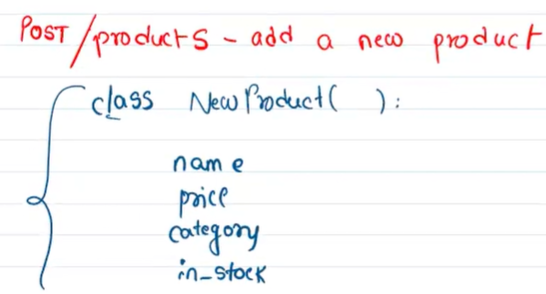 POST/products - add a new product
class NewProduct( ):
name
price
category
in_stock